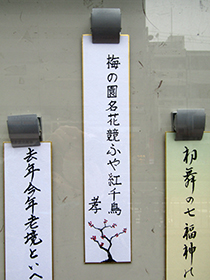 梅の園名花競ふや紅千鳥
孝
初舞の七福神の
去年今年老境といへ